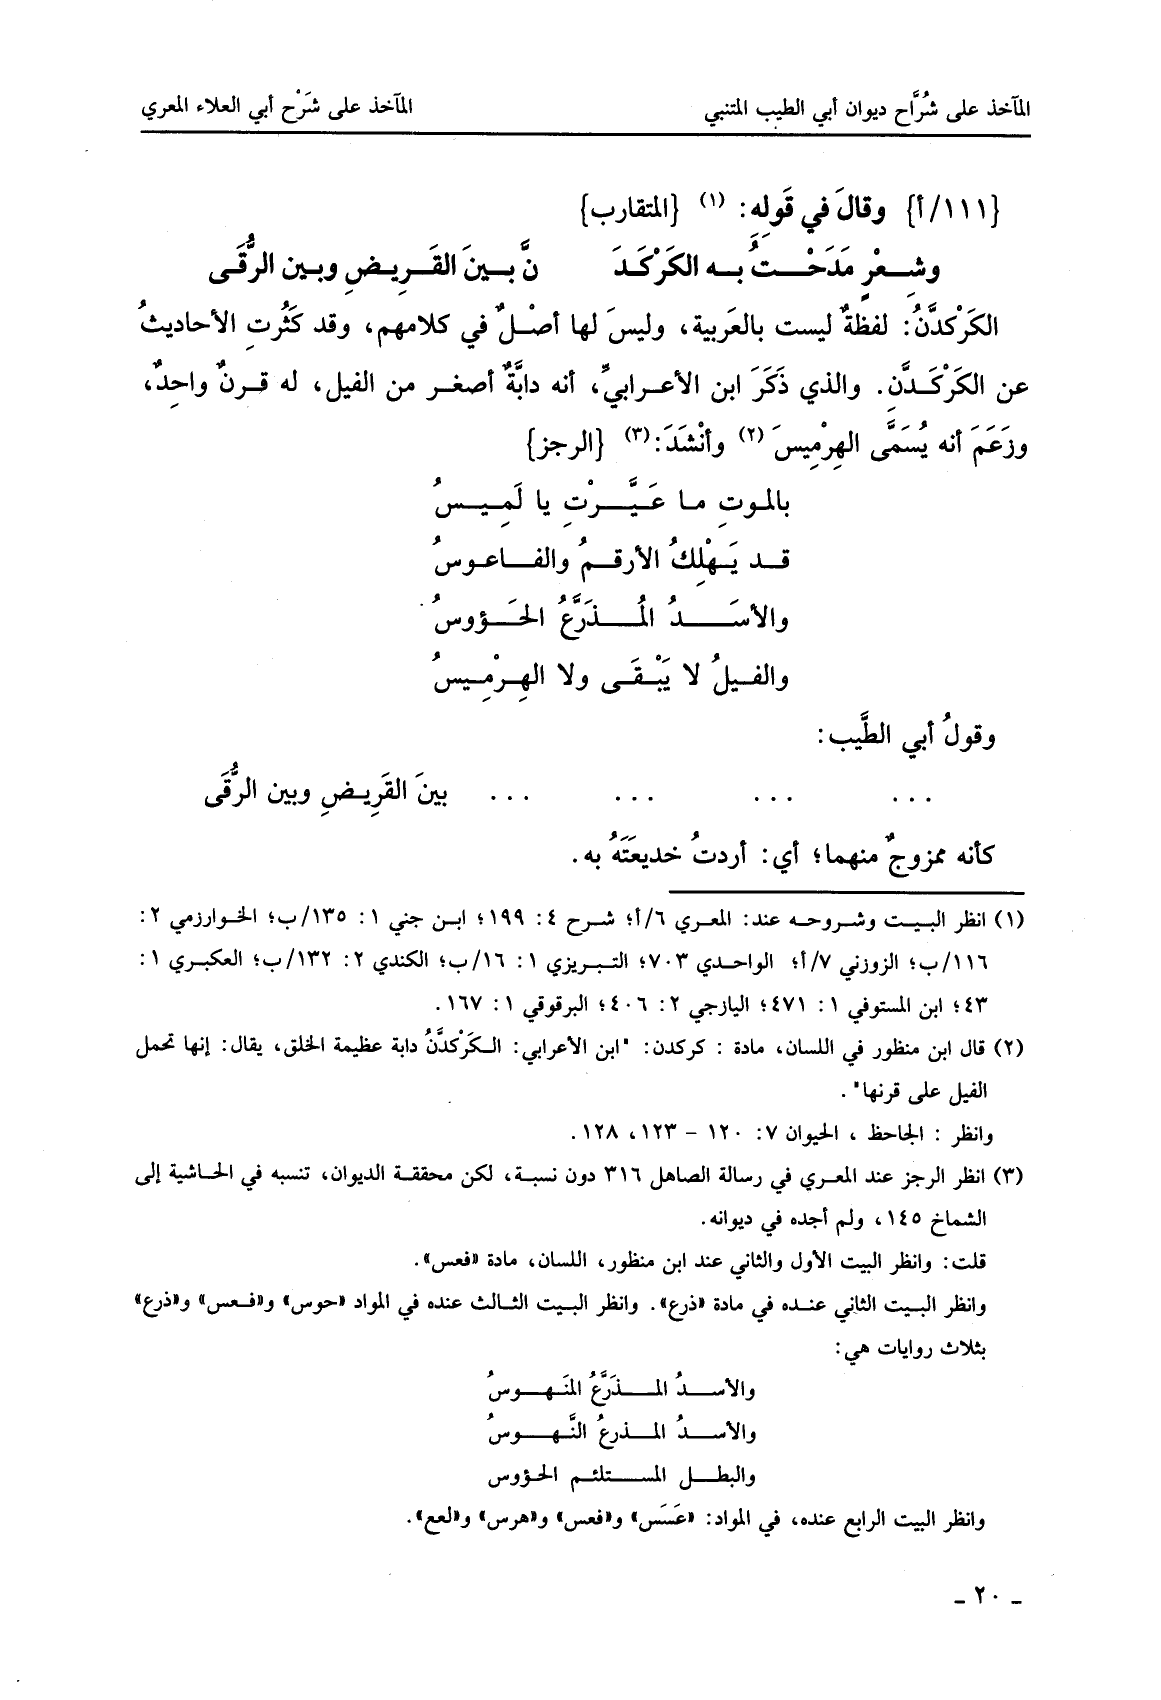 المآخذ على شُرَّاح ديوان أبي الطيب المتنبي المآخذ على شَرْح أبي العلاء المعري
{١١١/أ} وقالَ في قَولِهِ: (١) {المتقارب}
وشِعْرٍ مَدَحْتُ به الكَرْكَدَ نَّ بينَ القَرِيضِ وبين الرُّقَى
الكَرْكدَّنُ: لفظةٌ ليست بالعَربية، وليسَ لها أصْلٌ في كلامهم، وقد كَثُرتِ الأحاديثُ
عن الكَرْكَدَّنِ. والذي ذَكَرَ ابن الأعرابيِّ، أنه دابَّةٌ أصغر من الفيل، له قرنٌ واحِدٌ،
وزَعَمَ أنه يُسَمَّى الهِرْمِيسَ (٢) وأنْشَدَ: (٣) {الرجز}
بالموتِ ما عَيَّرْتِ يا لَمِيسُ
قد يَهْلِكُ الأرقمُ والفاعوسُ
والأسَدُ المُذَرَّعُ الحَؤوسُ
والفيلُ لا يَبْقَى ولا الهِرْمِيسُ
وقولُ أبي الطَّيب:
... ... ... ... بينَ القَرِيضِ وبين الرُّقَى
كأنه ممزوجٌ منهما؛ أي: أردتُ خديعَتَهُ به.
(١) انظر البيت وشروحه عند: المعري ٦/أ؛ شرح ٤: ١٩٩؛ ابن جني ١: ١٣٥/ب؛ الخوارزمي ٢:
١١٦/ب؛ الزوزني ٧/أ؛ الواحدي ٧٠٣؛ التبريزي ١: ١٦/ب؛ الكندي ٢: ١٣٢/ب؛ العكبري ١:
٤٣؛ ابن المستوفي ١: ٤٧١؛ اليازجي ٢: ٤٠٦؛ البرقوقي ١: ١٦٧.
(٢) قال ابن منظور في اللسان، مادة : كركدن: "ابن الأعرابي: الكَرْكدَّنُ دابة عظيمة الخلق، يقال: إنها تحمل
الفيل على قرنها".
وانظر : الجاحظ ، الحيوان ٧: ١٢٠ - ١٢٣، ١٢٨.
(٣) انظر الرجز عند المعري في رسالة الصاهل ٣١٦ دون نسبة، لكن محققة الديوان، تنسبه في الحاشية إلى
الشماخ ١٤٥، ولم أجده في ديوانه.
قلت: وانظر البيت الأول والثاني عند ابن منظور، اللسان، مادة «فعس».
وانظر البيت الثاني عنده في مادة «ذرع». وانظر البيت الثالث عنده في المواد «حوس» و«فعس» و«ذرع»
بثلاث روايات هي:
والأسدُ المذَرَّعُ المَنهوسُ
والأسدُ المذرعُ النَّهوسُ
والبطل المستلئم الحؤوس
وانظر البيت الرابع عنده، في المواد: «عَسَس» و«فعس» و«هرس» و«لعع».
ـ ٢٠ ـ